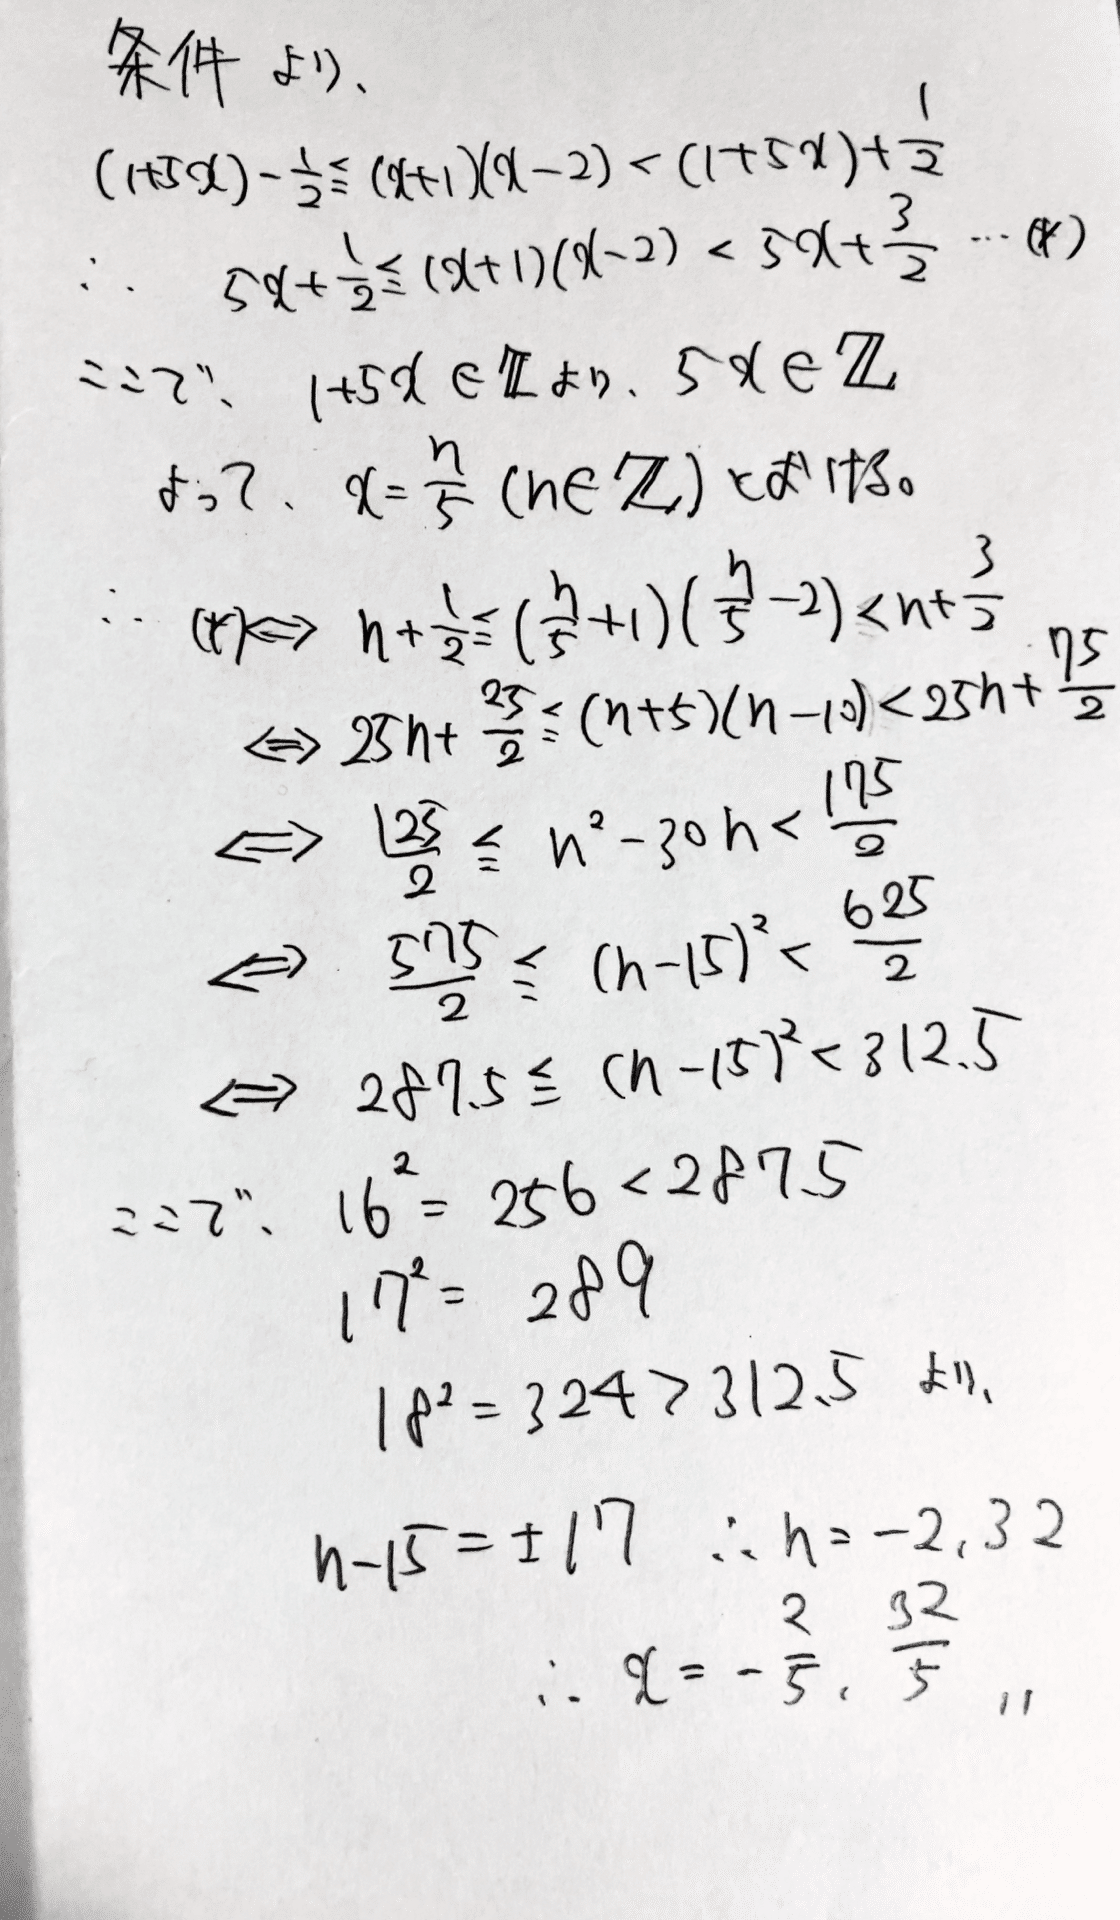 条件より、
(1+5x)-1/2≦(x+1)(x-2)<(1+5x)+1/2
∴ 5x+1/2≦(x+1)(x-2)<5x+3/2 …(*)
ここで、1+5x∈ℤより、5x∈ℤ
よって、x=n/5 (n∈ℤ)とおける。
∴ (*)⇔ n+1/2≦(n/5+1)(n/5-2)<n+3/2
⇔ 25n+25/2≦(n+5)(n-10)<25n+75/2
⇔ 125/2≦n²-30n<175/2
⇔ 575/2≦(n-15)²<625/2
⇔ 287.5≦(n-15)²<312.5
ここで、16²=256<287.5
17²=289
18²=324>312.5 より、
n-15=±17 ∴n=-2,32
∴ x=-2/5, 32/5 〃